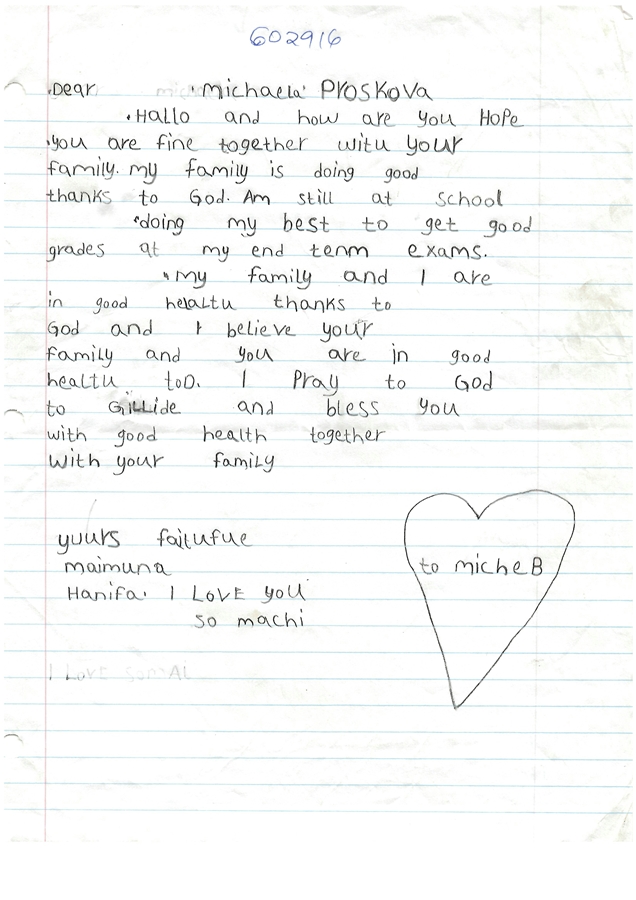 602916
Dear Michaela PROSKOVA
Hallo and how are you Hope
you are fine together witu your
family. my family is doing good
thanks to God. Am still at school
doing my best to get good
grades at my end tenm exams.
My family and I are
in good healtu thanks to
God and I believe your
Family and you are in good
healtu too. I Pray to God
to GiLLide and bless you
with good health together
With your family
yuurs failufue
maimuna
Hanifa. I LOVE you
so machi
to micheB
I Love